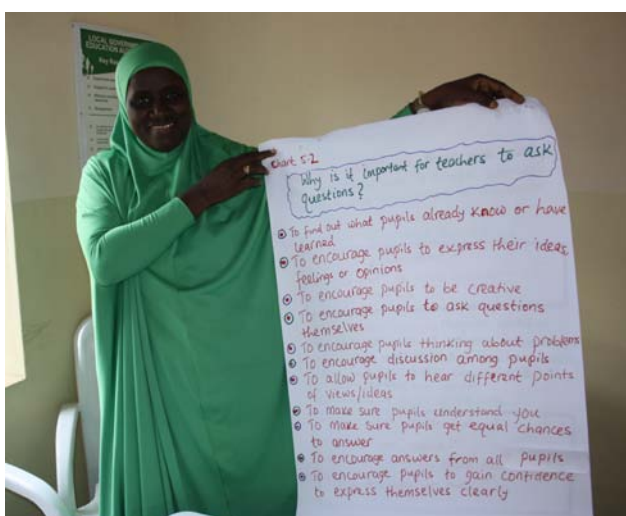 LOCAL GOVERNMENT
EDUCATION
Key
Chart 5.2
Why is it important for teachers to ask
questions?
To find out what pupils already know or have
learned
To encourage pupils to express their ideas,
feelings or opinions
To encourage pupils to be creative
To encourage pupils to ask questions
themselves
To encourage pupils thinking about problems
To encourage discussion among pupils
To allow pupils to hear different points
of views/ideas
To make sure pupils understand you
To make sure pupils get equal chances
to answer
To encourage answers from all pupils
To encourage pupils to gain confidence
to express themselves clearly